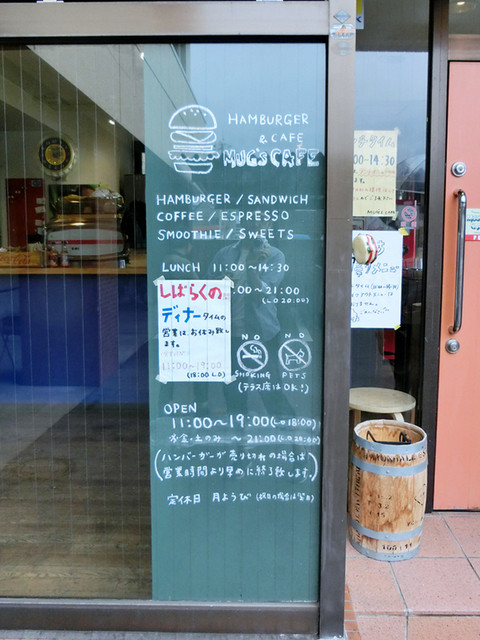 HAMBURGER
& CAFE
MUG'S CAFE
HAMBURGER / SANDWICH
COFFEE / ESPRESSO
SMOOTHIE / SWEETS
LUNCH 11:00～14:30
:00～21:00
(L.O 20:00)
しばらくの
ディナータイムの
営業は、お休み致し
ます。
11:00～19:00
(18:00 L.O)
NO NO
SMOKING PETS
(テラス席はOK!)
OPEN
11:00～19:00 (L.O 18:00)
金・土のみ ～21:00 (L.O 20:00)
(ハンバーガーが売り切れの場合は
営業時間より早めに終了致します。)
定休日 月ようび (祝日の場合は翌日)
:00~14:30